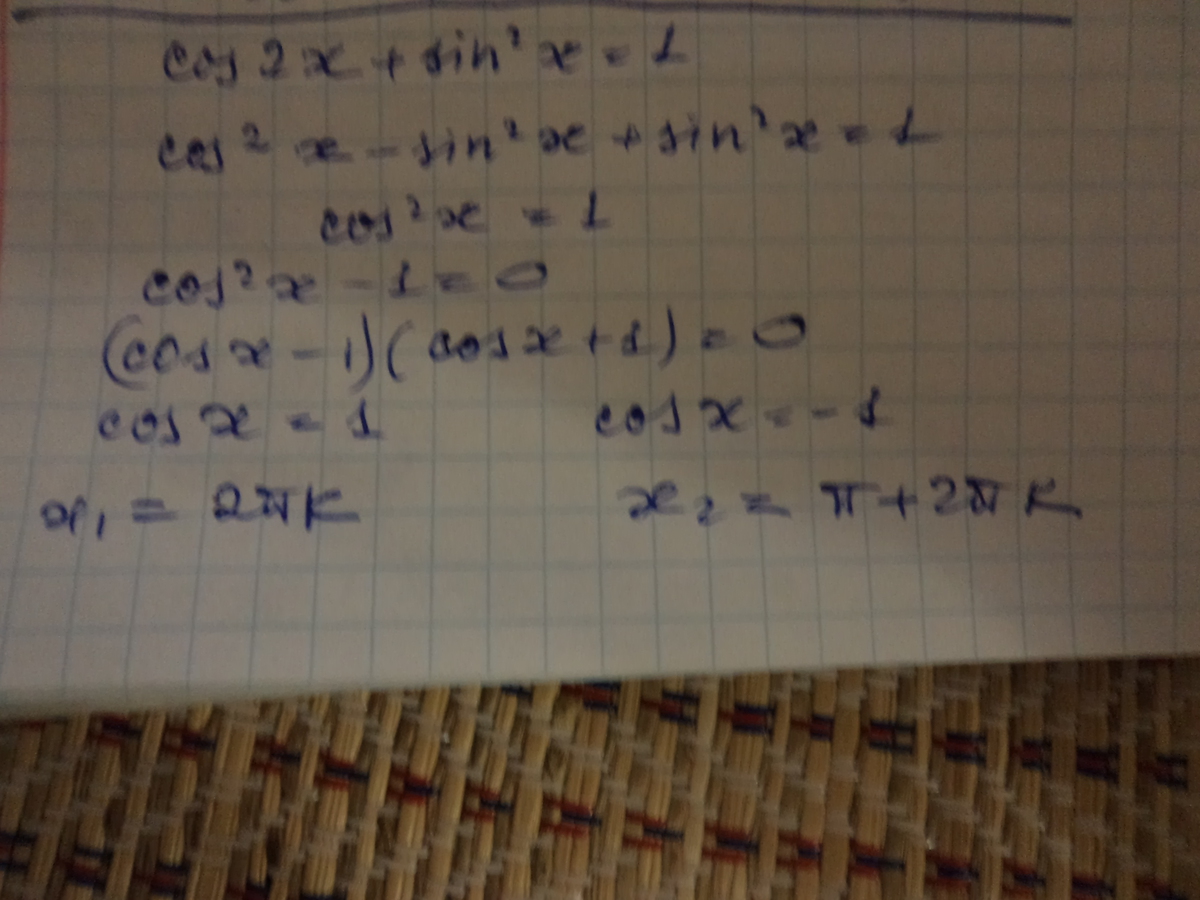 cos 2x + sin² x = 1
cos² x - sin² x + sin² x = 1
cos² x = 1
cos² x - 1 = 0
(cos x - 1)(cos x + 1) = 0
cos x = 1 cos x = - 1
x₁ = 2πk x₂ = π + 2πk